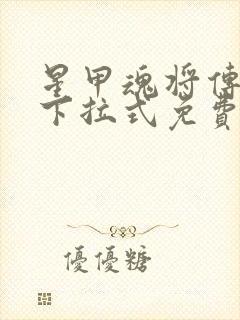 星甲魂将傳
下拉式免費
優優糖